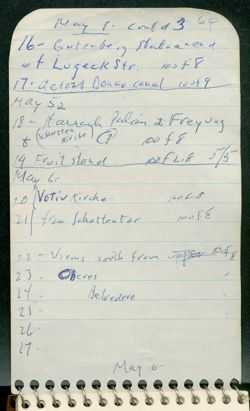 May 1. cont'd 3 64
16 - Gutenberg statue and
of Lugeck Str. 100 f 8
17 - across Donau canal 100 f 9
May 5
18 - Harrach Palais at Freyung
& (Schotten Kirche) 100 f 8
19 Fruit stand 5/5
May 6
20 Votiv Kirche 100 f 8
21 from Schottentor 100 f 8
22 - Views north from upper f 8
23 - Oberes "
24 - Belvedere "
25 - "
26 -
27 -
May 6